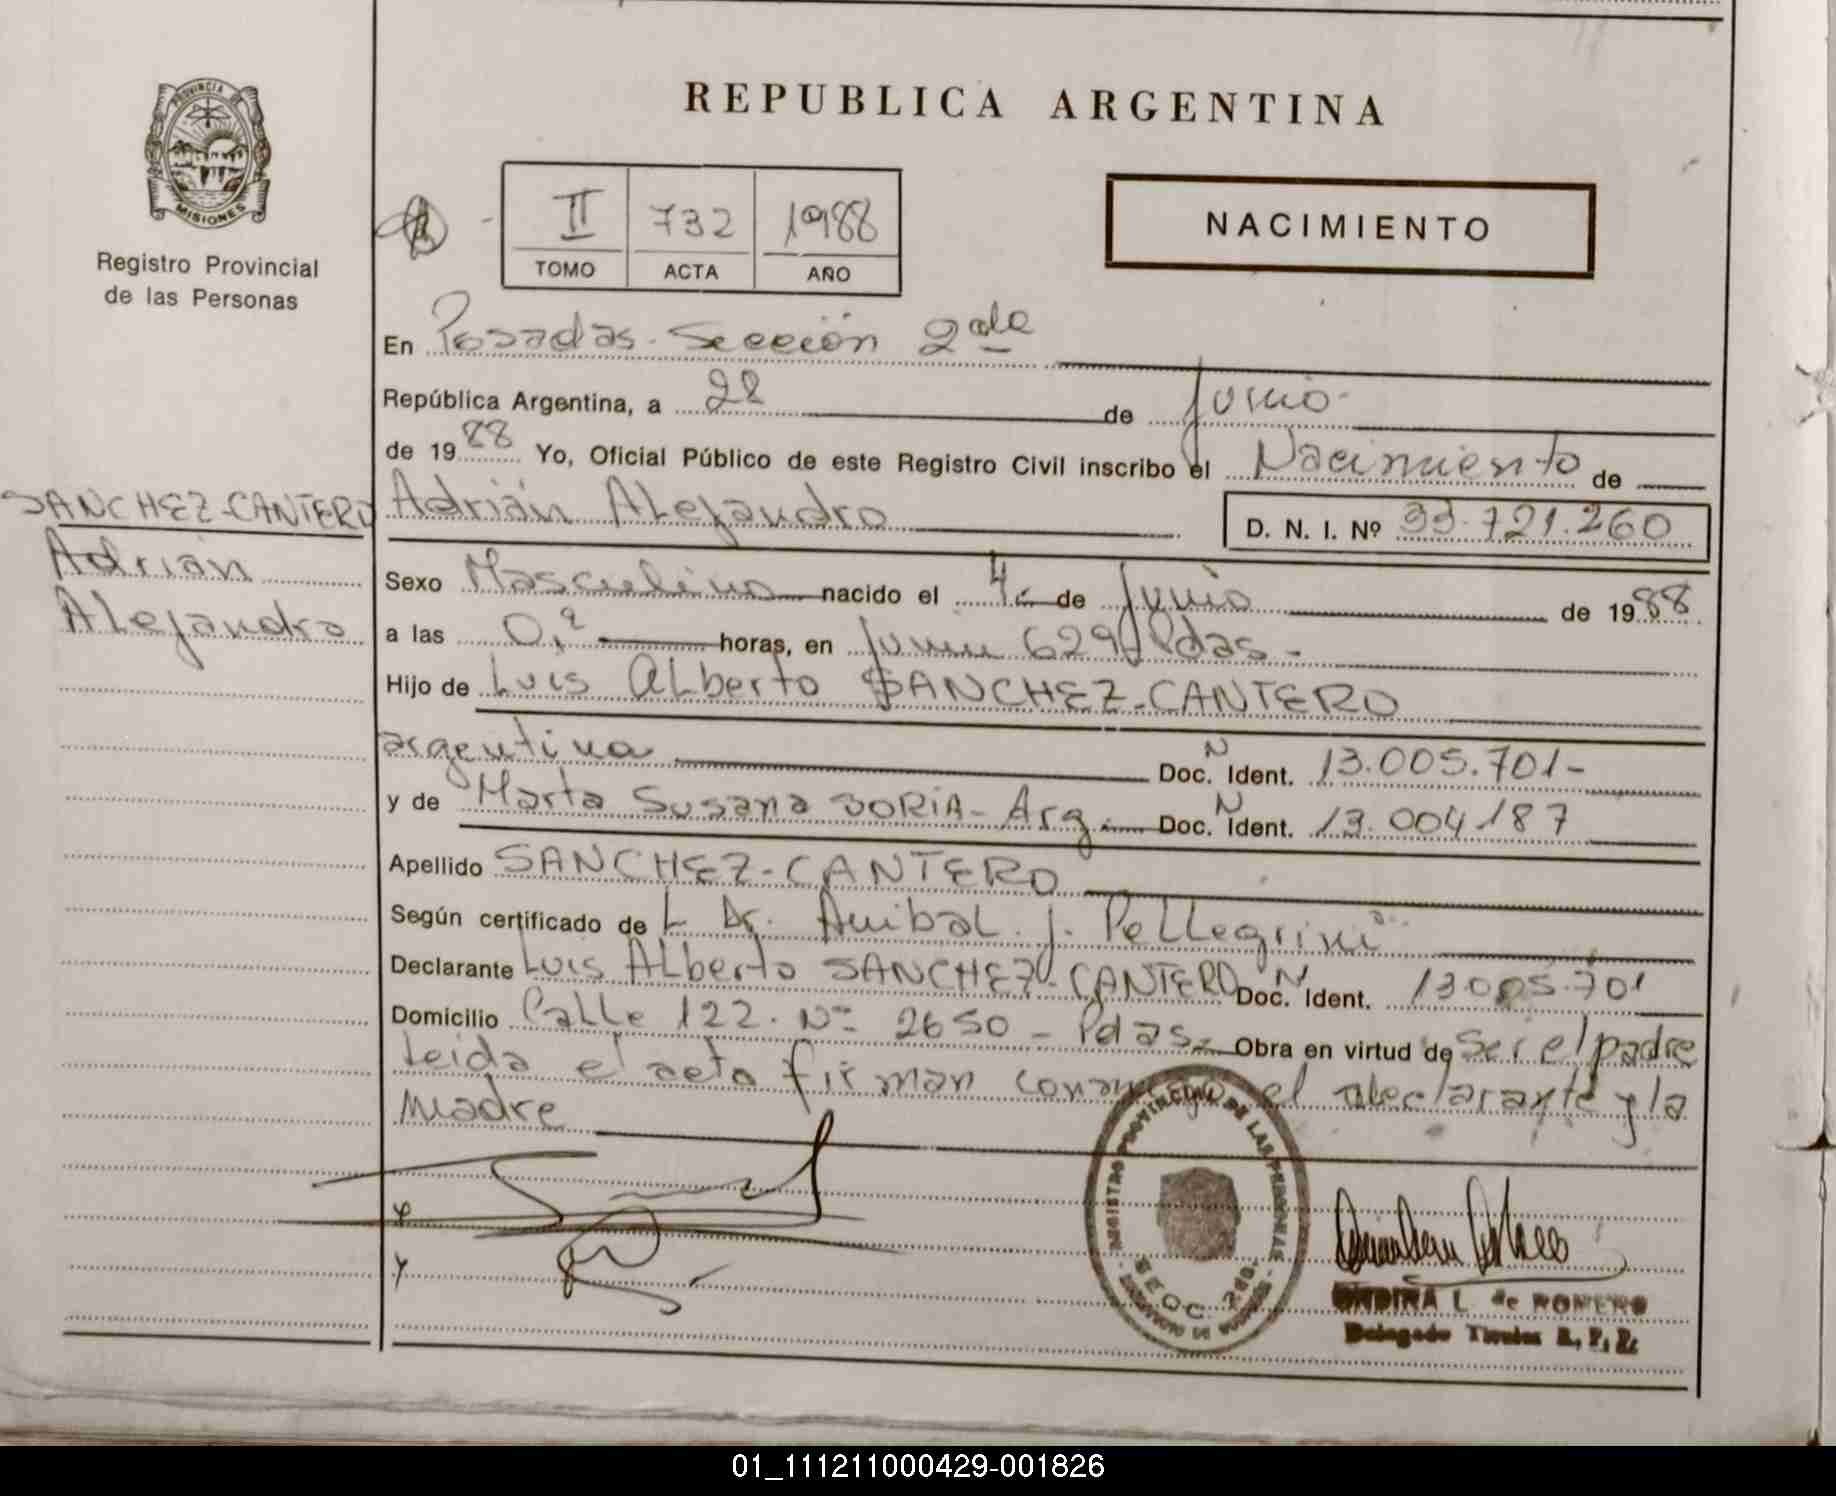 PROVINCIA DE
MISIONES
Registro Provincial
de las Personas
REPUBLICA ARGENTINA
II 732 1988
TOMO ACTA AÑO
NACIMIENTO
En Posadas - Sección 2da
República Argentina, a 28 de Junio -
de 1988 Yo, Oficial Público de este Registro Civil inscribo el Nacimiento de
SANCHEZ-CANTERO
Adrián
Alejandro
Adrián Alejandro D. N. I. Nº 33.721.260
Sexo Masculino nacido el 4 de Junio de 1988
a las 0, horas, en Junin 629 Pdas -
Hijo de Luis Alberto SANCHEZ-CANTERO
argentina Doc. N Ident. 13.005.701-
y de Marta Susana SORIA - Arg. Doc. N Ident. 13.004.187
Apellido SANCHEZ-CANTERO
Según certificado de L Dr. Anibal J. Pellegrini
Declarante Luis Alberto SANCHEZ-CANTERO Doc. N Ident. 13.005.701
Domicilio Calle 122. Nº 2650 - Pdas - Obra en virtud de ser el padre
Leida el acta firman conmigo el declarante y la
madre
REGISTRO PROVINCIAL DE LAS PERSONAS
SECC. 2da.
L. de ROMERO
Delegado Titular R. P. P.
01_111211000429-001826